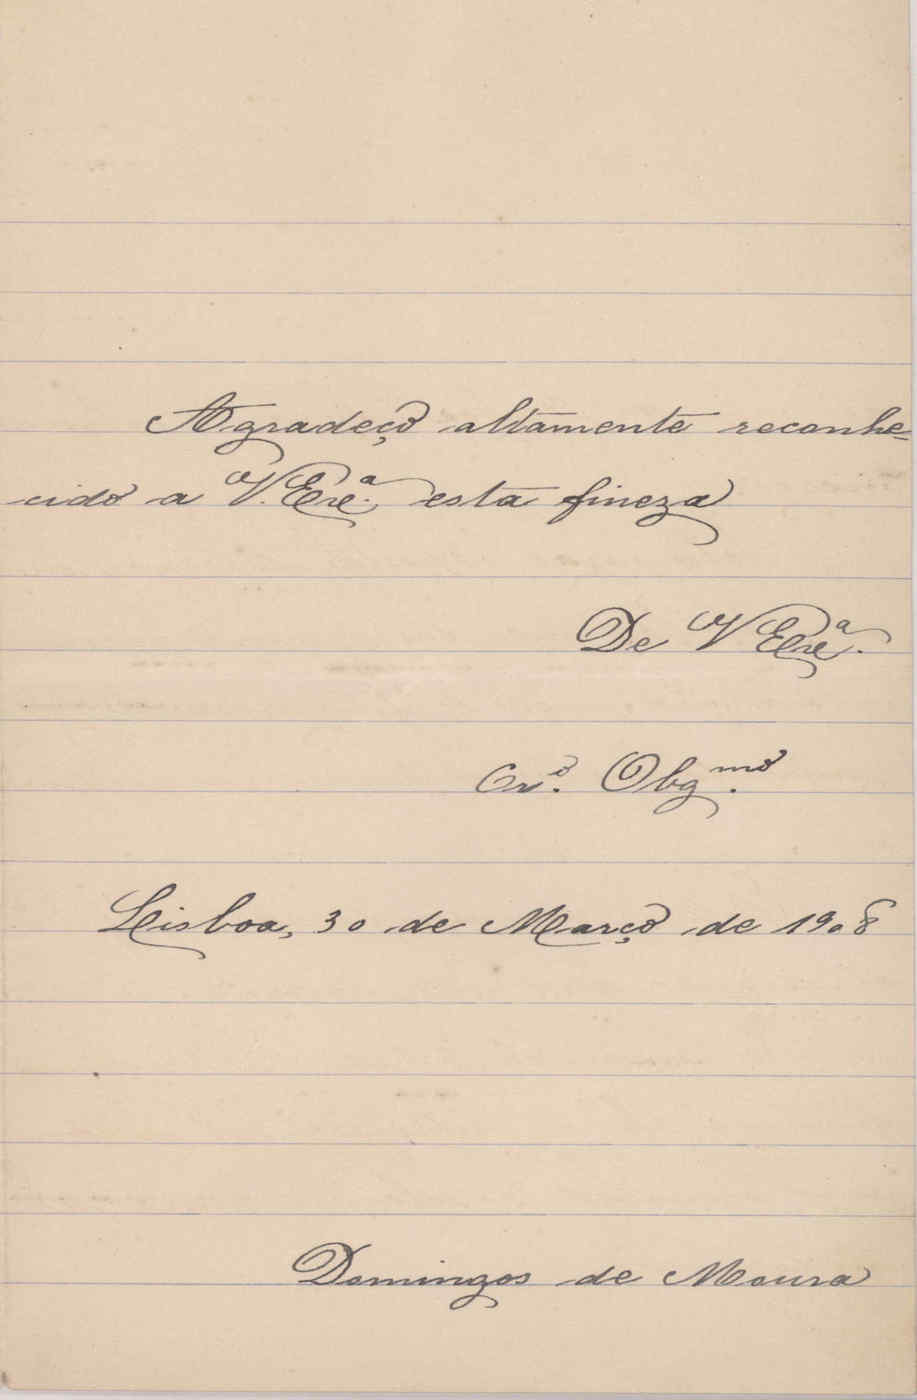 Agradeço altamente reconhe-
cido a V. Exª. esta fineza
De V Exª.
Crº. Obgmº.
Lisboa, 30 de Março de 1908
Domingos de Moura